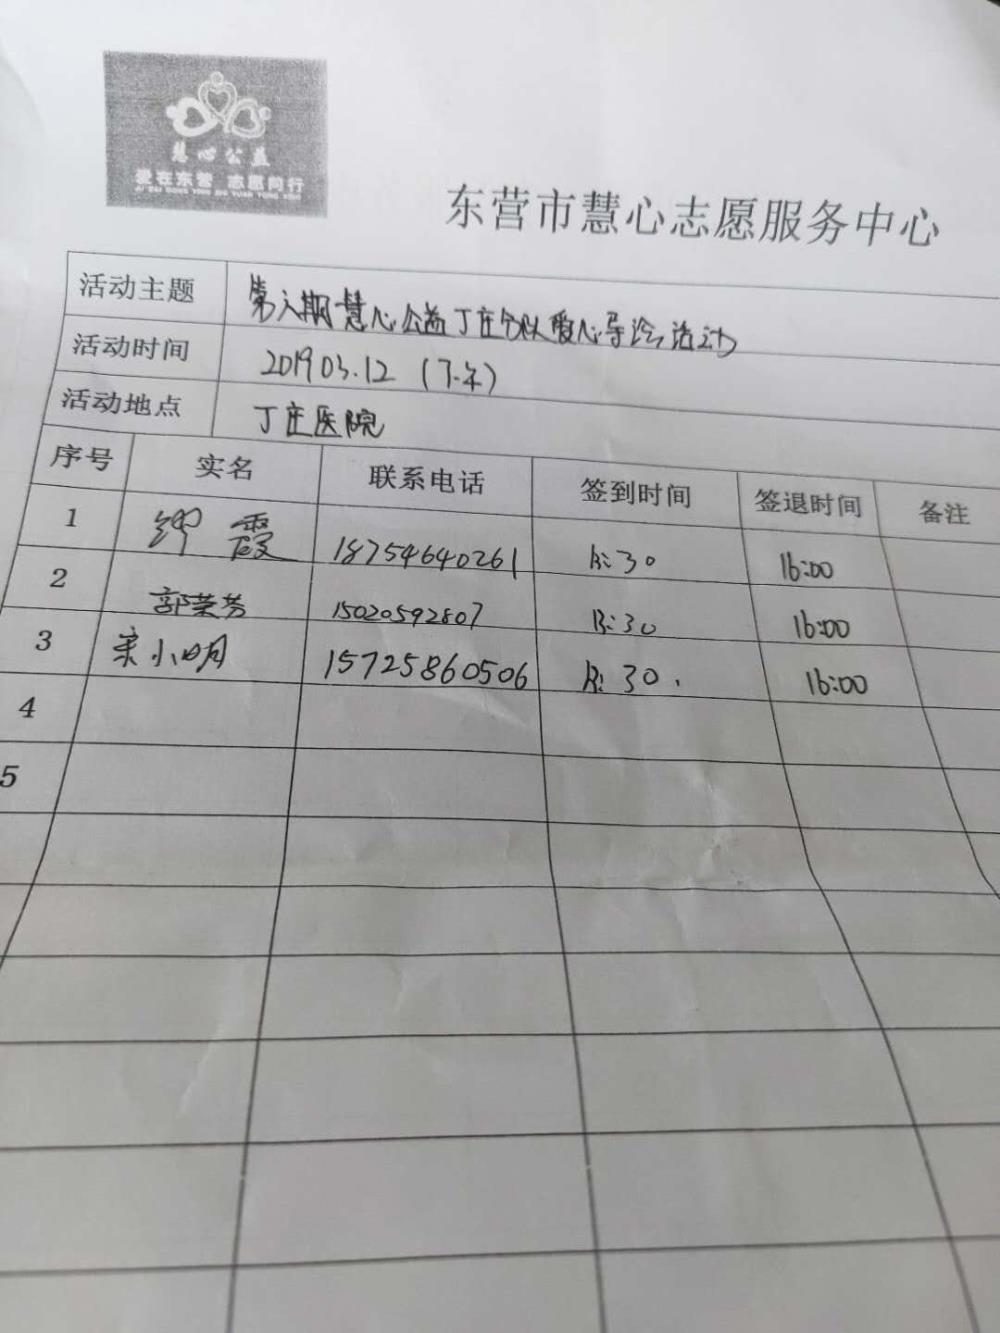 慧心公益
爱在东营 志愿同行
AI ZAI DONG YING ZHI YUAN TONG XING
东营市慧心志愿服务中心
活动主题 第六期慧心公益丁庄分队爱心导诊活动
活动时间 2019 03.12 (下午)
活动地点 丁庄医院
序号 实名 联系电话 签到时间 签退时间 备注
1 霞 18754640261 13:30 16:00
2 郭荣芳 15020592807 13:30 16:00
3 宋小明 15725860506 13:30. 16:00
4
5